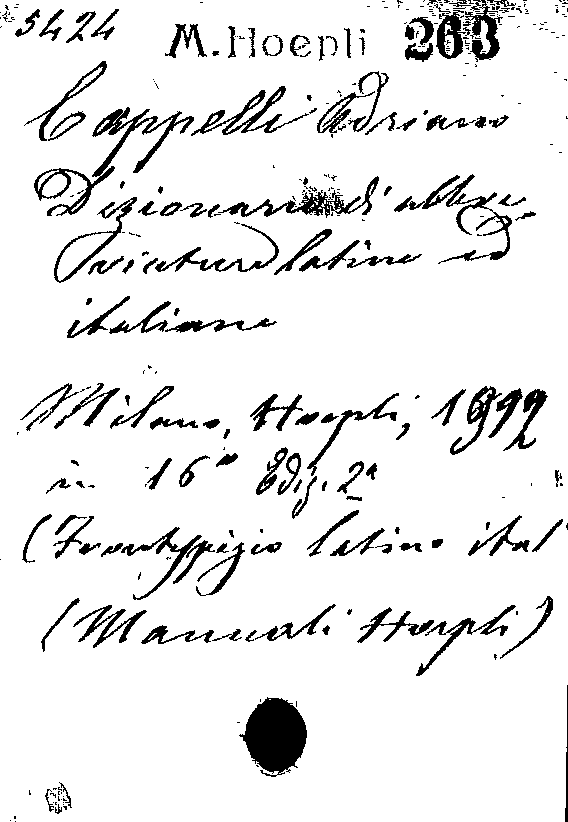 5424 M. Hoepli 263
Cappelli Adriano
Dizionario di abbre-
viature latine ed
italiane
Milano, Hoepli, 1912
in 16° Ediz. 2ª
(Frontespizio latino ital
(Manuali Hoepli)